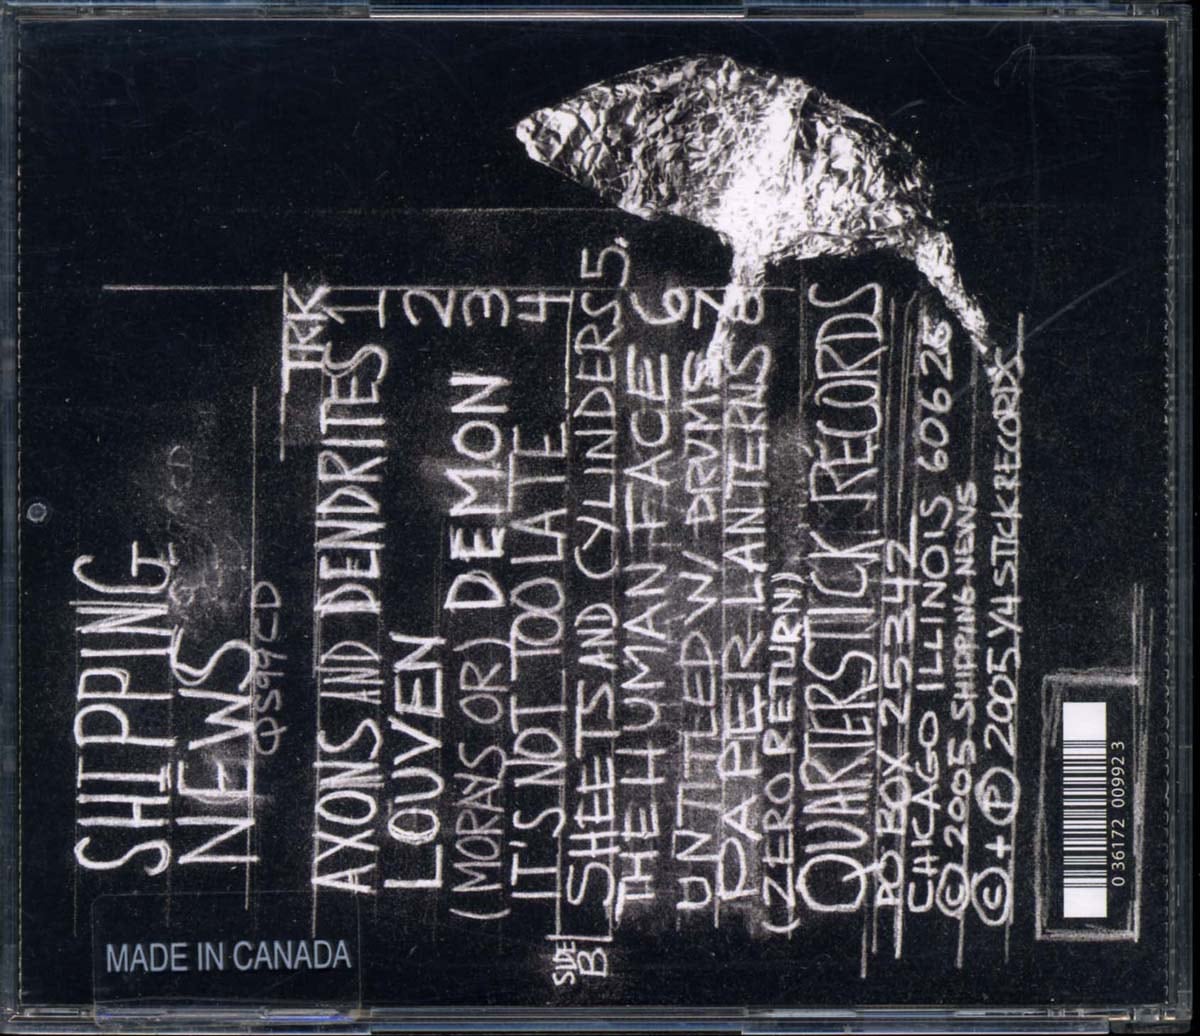 SHIPPING
NEWS
QS99CD
TRK
AXONS AND DENDRITES 1
LOUVEN 2
(MORAYS OR) DEMON 3
IT'S NOT TOO LATE 4
SIDE B
SHEETS AND CYLINDERS 5.
THE HUMAN FACE 6
UNTITLED W/ DRUMS 7
PAPER LANTERNS 8
(ZERO RETURN)
QUARTERSTICK RECORDS
PO BOX 25342
CHICAGO ILLINOIS 60625
© 2005 SHIPPING NEWS
© + ℗ 2005 1/4 STICK RECORDS
0 36172 00992 3
MADE IN CANADA